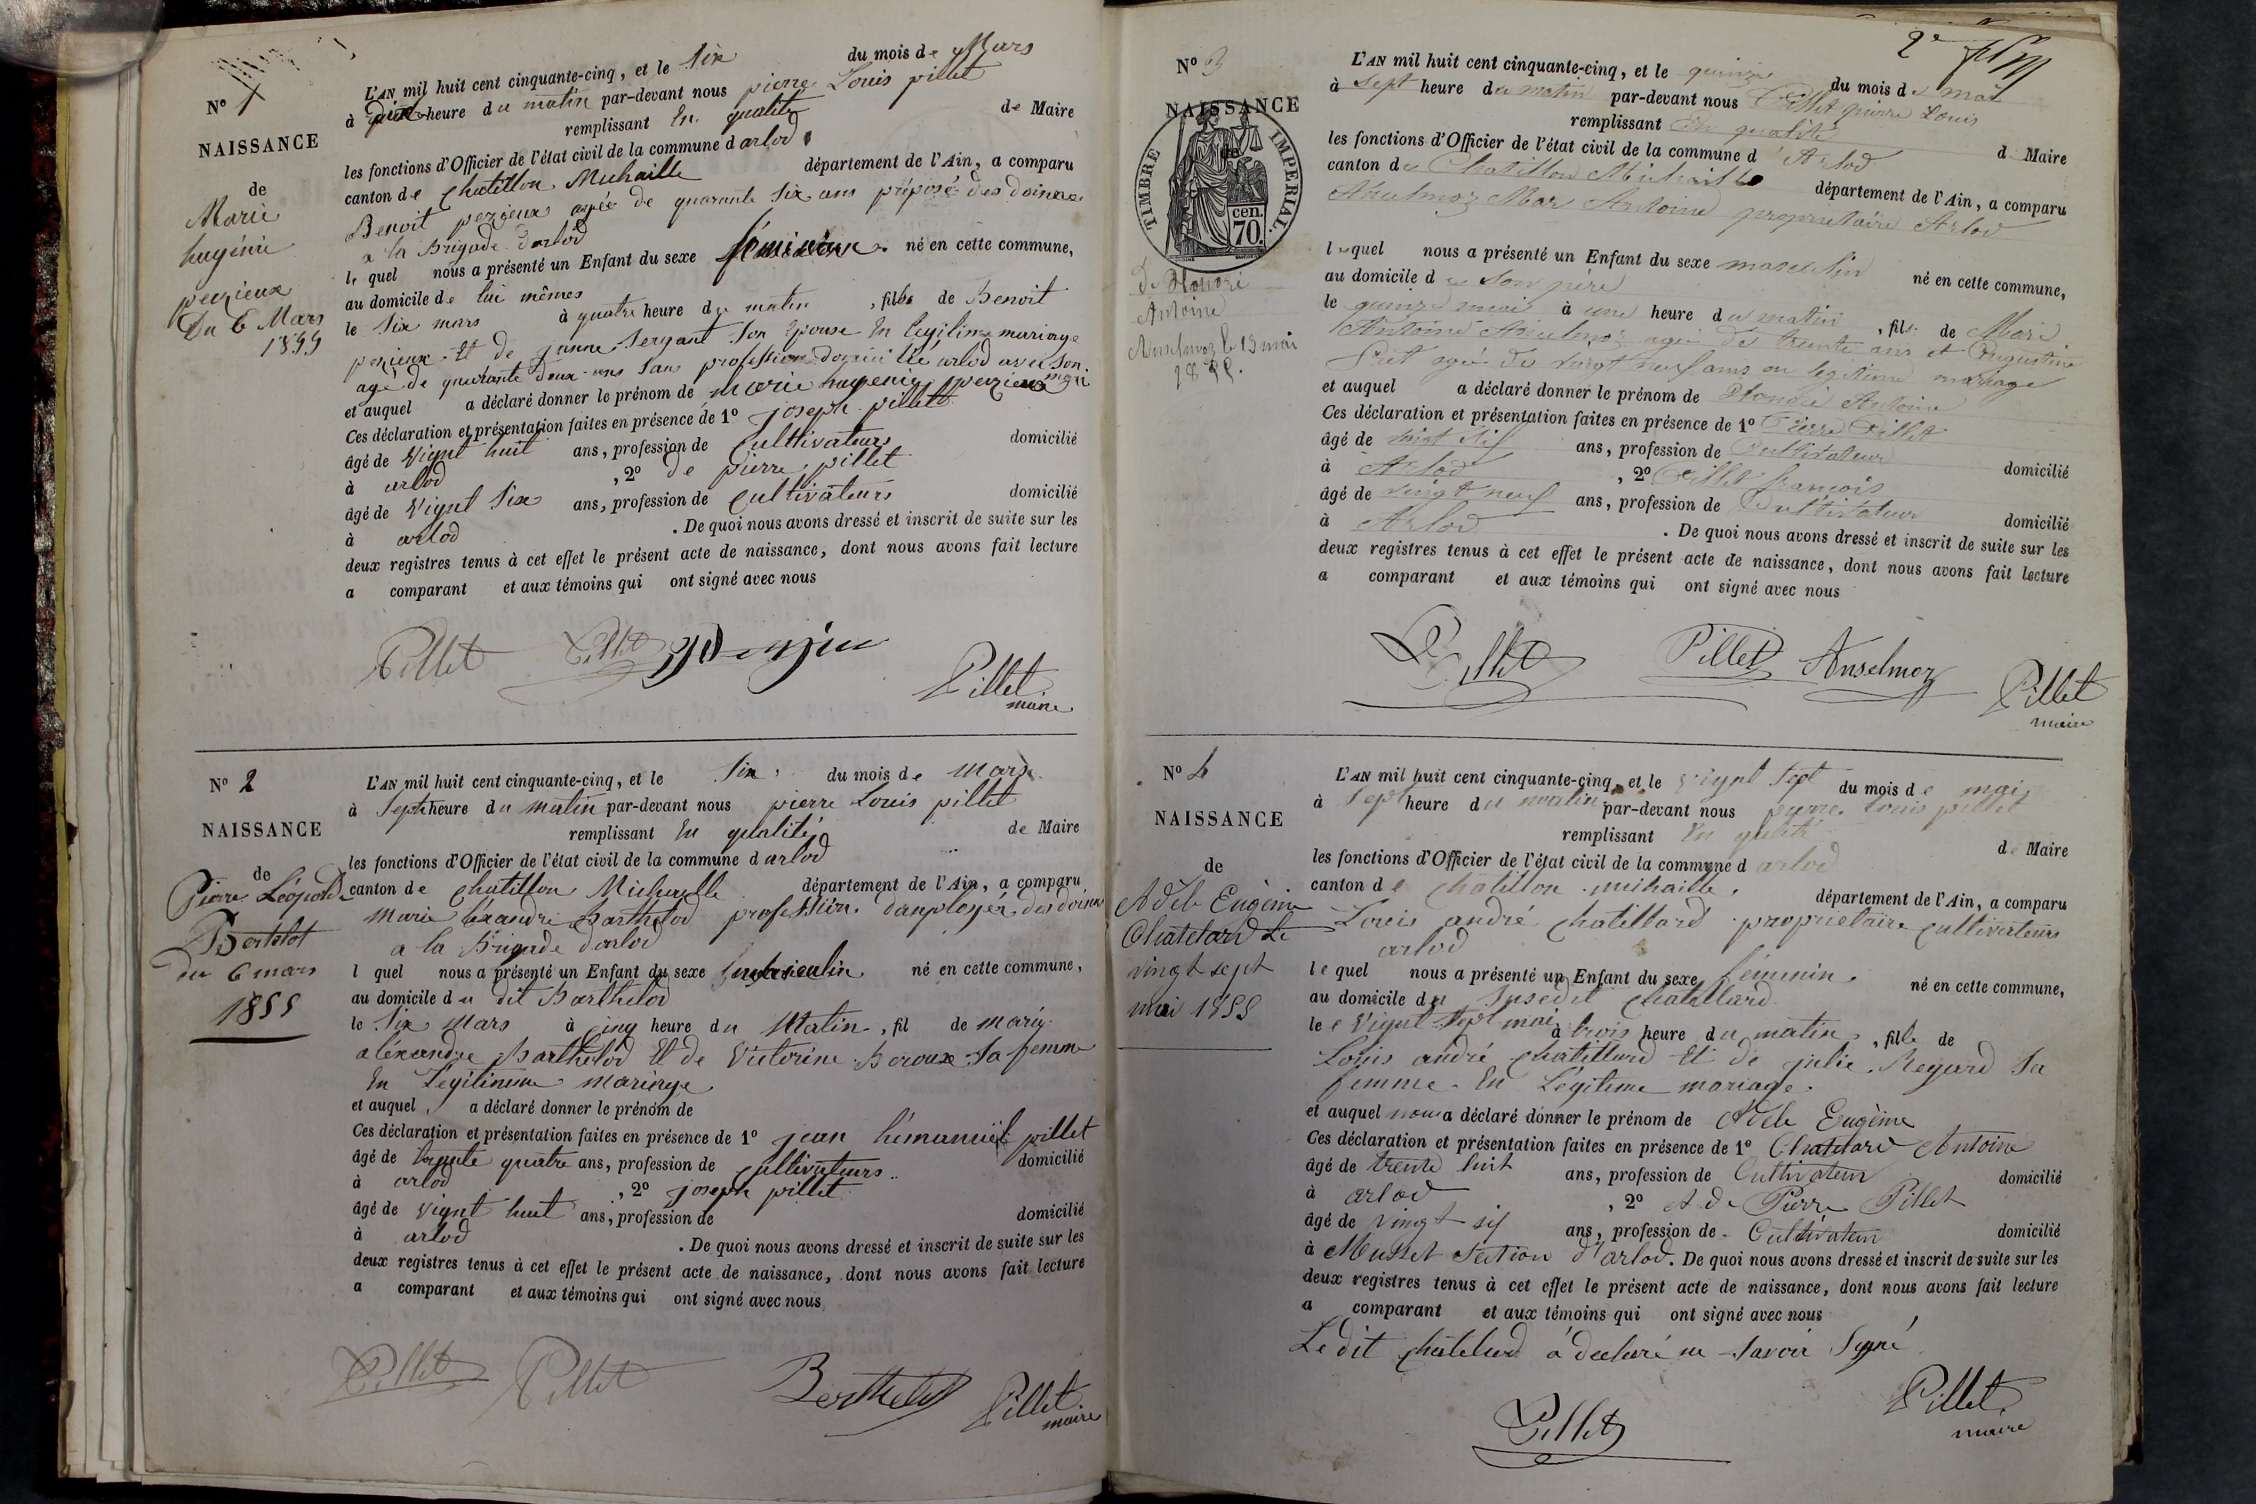 N° 1
NAISSANCE
de
Marie
hugénie
perzieux
Du 6 Mars
1855
L'AN mil huit cent cinquante-cinq, et le Six du mois de Mars
à heure du matin par-devant nous pierre Louis pillet
remplissant En qualité de Maire
les fonctions d'Officier de l'état civil de la commune d arlod
canton de Chatillon Michaille département de l'Ain, a comparu
Benoit perzieux agée de quarante Six ans préposé des doines
a la Brigade darlod
le quel nous a présenté un Enfant du sexe féminin né en cette commune,
au domicile de lui mêmes
le Six mars à quatre heure du matin, fille de Benoit
perzieux Et de janne Sergant Son Epouse En legitime mariage
agé de quarante deux ans Sans profession domiciliée arlod avec son mari
et auquel a déclaré donner le prénom de Marie hugenie perzieux
Ces déclaration et présentation faites en présence de 1° joseph pillet
âgé de Vignt huit ans, profession de Cultivateurs domicilié
à arlod, 2° de pierre pillet
âgé de Vignt Six ans, profession de Cultivateurs domicilié
à arlod. De quoi nous avons dressé et inscrit de suite sur les
deux registres tenus à cet effet le présent acte de naissance, dont nous avons fait lecture
a comparant et aux témoins qui ont signé avec nous
Pillet Pillet
Pillet
maire
N° 2
NAISSANCE
de
Pierre Léopold
Bertelot
du 6 mars
1855
L'AN mil huit cent cinquante-cinq, et le Six du mois de mars
à Sept heure du matin par-devant nous pierre Louis pillet
remplissant En qualité de Maire
les fonctions d'Officier de l'état civil de la commune d arlod
canton de Chatillon Michaille département de l'Ain, a comparu
Marie léxandre Barthelod profession danployér des doines
a la Brigade darlod
l quel nous a présenté un Enfant du sexe masculin né en cette commune,
au domicile du dit Barthelod
le Six Mars à Cinq heure du Matin, fil de marie
aléxandre Barthelod Et de Victorine Boroux Sa femme
En Légitimme mariage
et auquel a déclaré donner le prénom de
Ces déclaration et présentation faites en présence de 1° jean hémanuël pillet
âgé de trente quatre ans, profession de Cultivateurs domicilié
à arlod, 2° joseph pillet
âgé de vignt huit ans, profession de domicilié
à arlod. De quoi nous avons dressé et inscrit de suite sur les
deux registres tenus à cet effet le présent acte de naissance, dont nous avons fait lecture
a comparant et aux témoins qui ont signé avec nous
Pillet Pillet Berthelot Pillet
maire
2e
N° 3
NAISSANCE
de
TIMBRE IMPERIAL
70 cen.
Antoine
Anselmoz le 15 mai
1855.
L'AN mil huit cent cinquante-cinq, et le quinze du mois de mai
à sept heure du matin par-devant nous Pillet pierre Louis
remplissant En qualité d Maire
les fonctions d'Officier de l'état civil de la commune d'Arlod
canton de Chatillon Michaille département de l'Ain, a comparu
Anselmoz Mar Antoine propriétaire Arlod
lequel nous a présenté un Enfant du sexe masculin né en cette commune,
au domicile de son père
le quinze mai à une heure du matin, fils de Marc
Antoine Anselmoz agé de trente ans et Augustine
agé de vingt neuf ans en legitime mariage
et auquel a déclaré donner le prénom de Antoine
Ces déclaration et présentation faites en présence de 1° Pierre Pillet
âgé de vingt six ans, profession de Cultivateur domicilié
à Arlod, 2° Pillet françois
âgé de vingt neuf ans, profession de Cultivateur domicilié
à Arlod. De quoi nous avons dressé et inscrit de suite sur les
deux registres tenus à cet effet le présent acte de naissance, dont nous avons fait lecture
a comparant et aux témoins qui ont signé avec nous
Pillet Pillet Anselmoz Pillet
maire
N° 4
NAISSANCE
de
Adele Eugénie
Chatelard Le
vingt sept
mai 1855
L'AN mil huit cent cinquante-cinq, et le vignt Sept du mois de mai
à Sept heure du matin par-devant nous pierre Louis pillet
remplissant En qualité de Maire
les fonctions d'Officier de l'état civil de la commune d arlod
canton de Chatillon michaille département de l'Ain, a comparu
Louis andré Chatillard propriétaire Cultivateurs
arlod
le quel nous a présenté un Enfant du sexe féminin né en cette commune,
au domicile du Susedit Chatellard
le Vignt Sept mai à trois heure du matin, fille de
Louis andré Chatillard Et de julie Regard Sa
femme En Legitime mariage.
et auquel nous a déclaré donner le prénom de Adele Eugènie
Ces déclaration et présentation faites en présence de 1° Chatelard Antoine
âgé de trente huit ans, profession de Cultivateur domicilié
à arlod, 2° Et de Pierre Pillet
âgé de vingt six ans, profession de Cultivateur domicilié
à Musset Section d'arlod. De quoi nous avons dressé et inscrit de suite sur les
deux registres tenus à cet effet le présent acte de naissance, dont nous avons fait lecture
a comparant et aux témoins qui ont signé avec nous
Le dit Châtelard a déclaré ne Savoir Signé
Pillet Pillet
maire